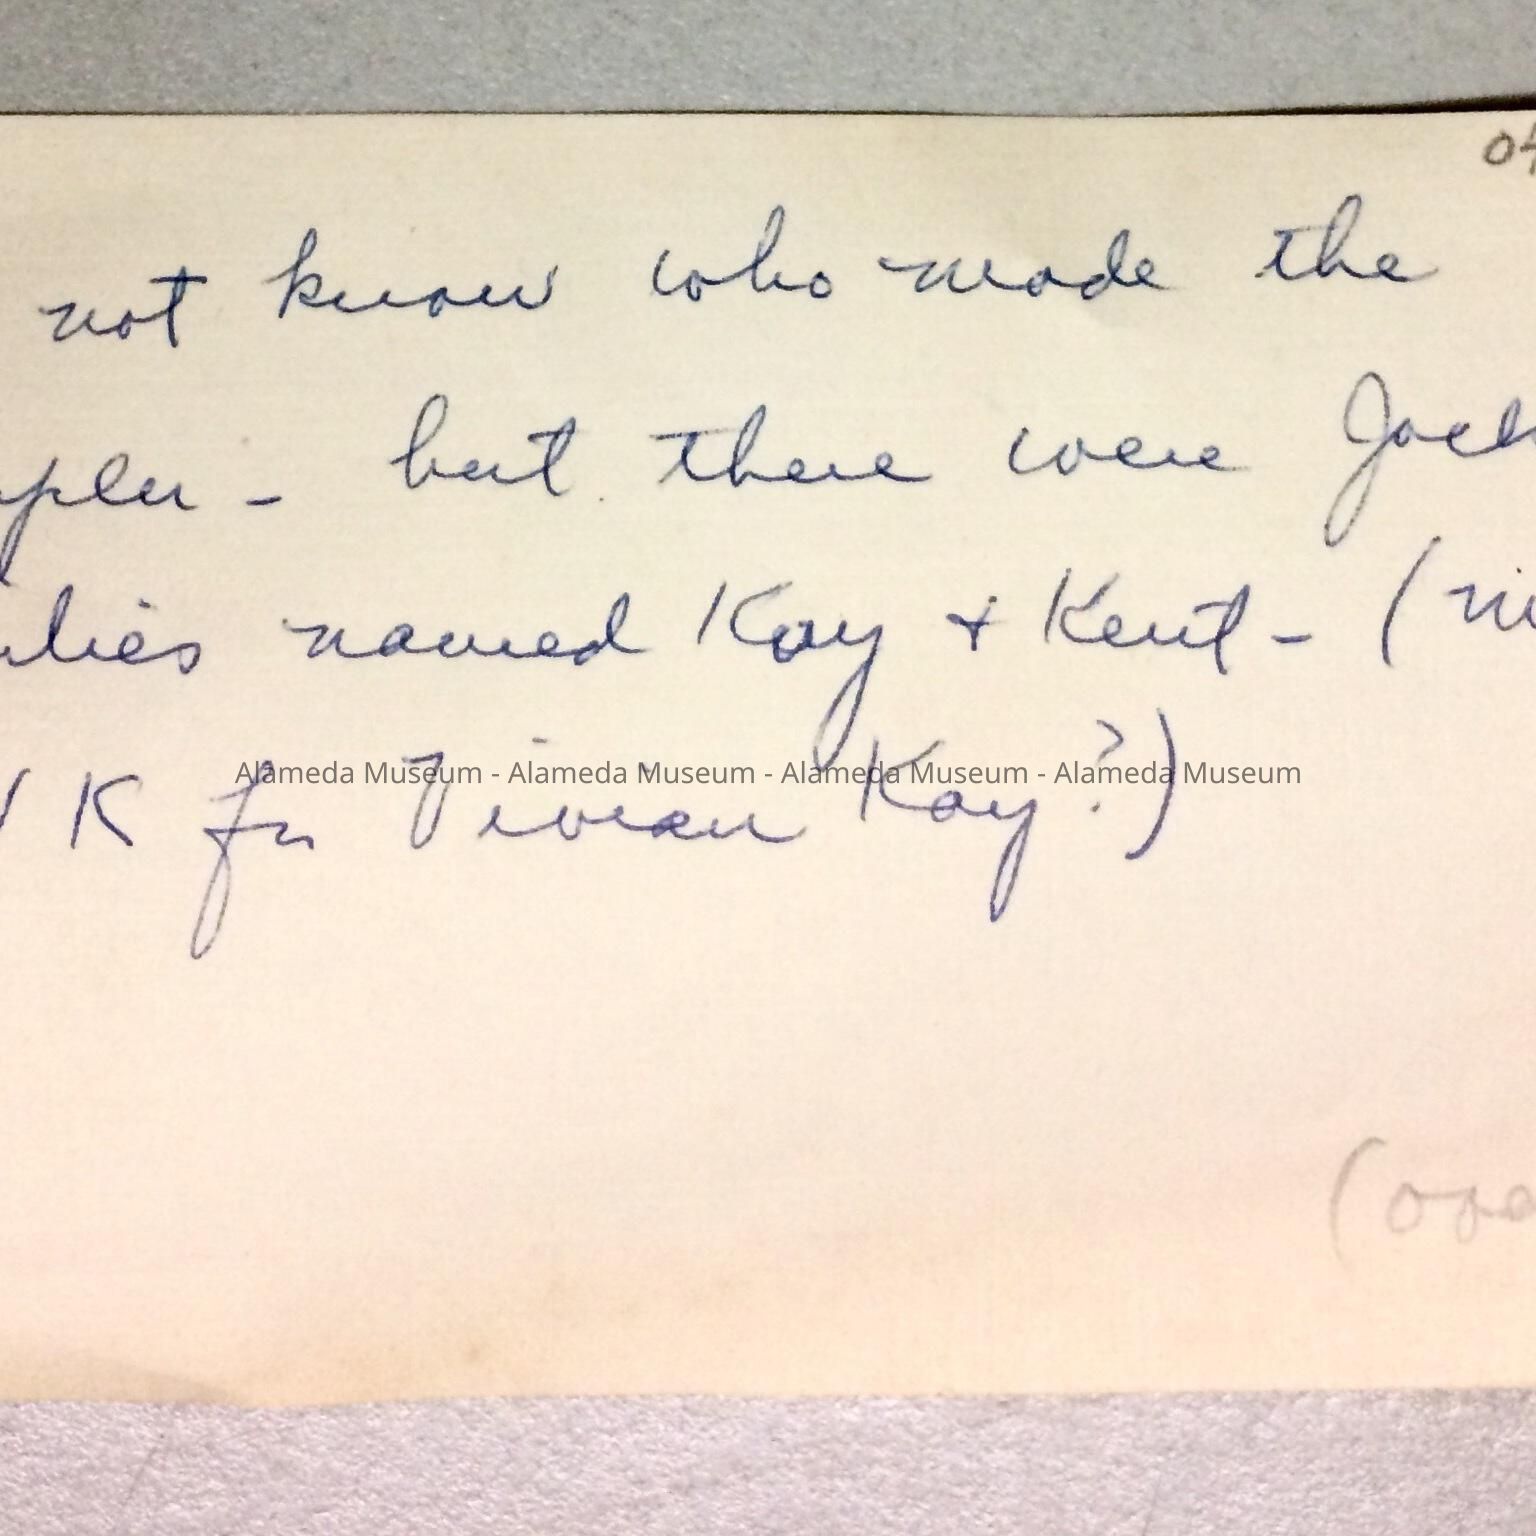 04
not know who made the
pler - but there were Jack
lies named Kay + Kent - (
V K for Vivian Kay?)
Alameda Museum - Alameda Museum - Alameda Museum - Alameda Museum
(ove